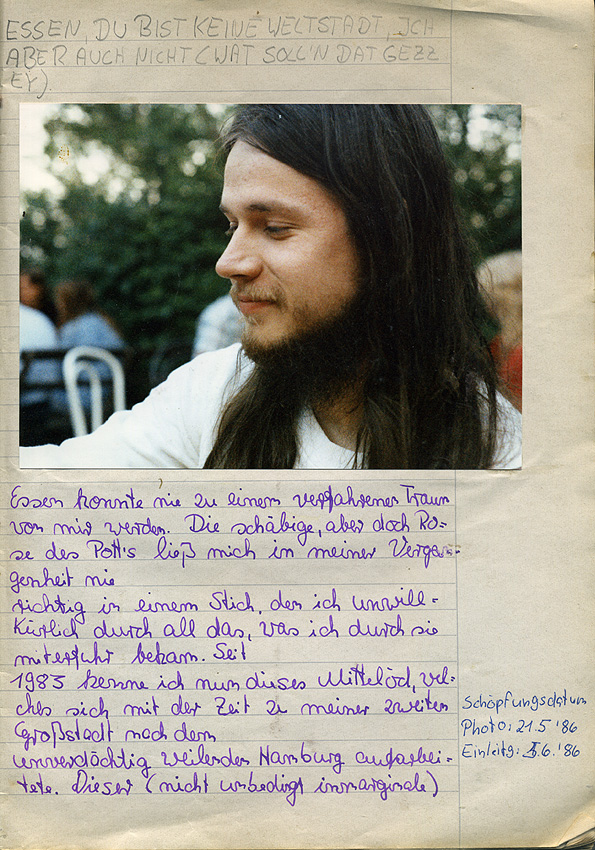 ESSEN, DU BIST KEINE WELTSTADT, ICH
ABER AUCH NICHT (WAT SOLL'N DAT GEZZ
EY).
Essen konnte nie zu einem verfahrenen Traum
von mir werden. Die schäbige, aber doch Ro-
se des Pott's ließ mich in meiner Vergan-
genheit nie
richtig in einem Stich, den ich unwill-
kürlich durch all das, was ich durch sie
miterfuhr bekam. Seit
1983 kenne ich nun dieses Mittelöd, wel-
ches sich mit der Zeit zu meiner zweiten
Großstadt nach dem
unverdächtig weilenden Hamburg aufarbei-
tete. Dieser (nicht unbedingt immarginale)
Schöpfungsdatum
Photo: 21.5 '86
Einleitg: 5.6. '86